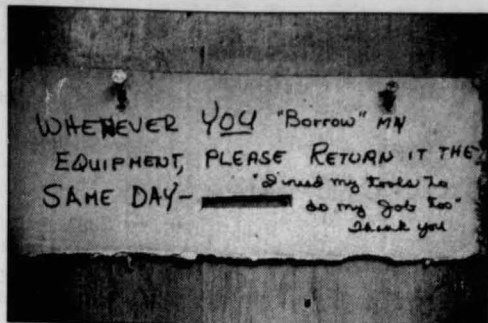 WHENEVER YOU "Borrow" MY
EQUIPMENT, PLEASE RETURN IT THE
SAME DAY- "I need my tools to
do my job too"
Thank you